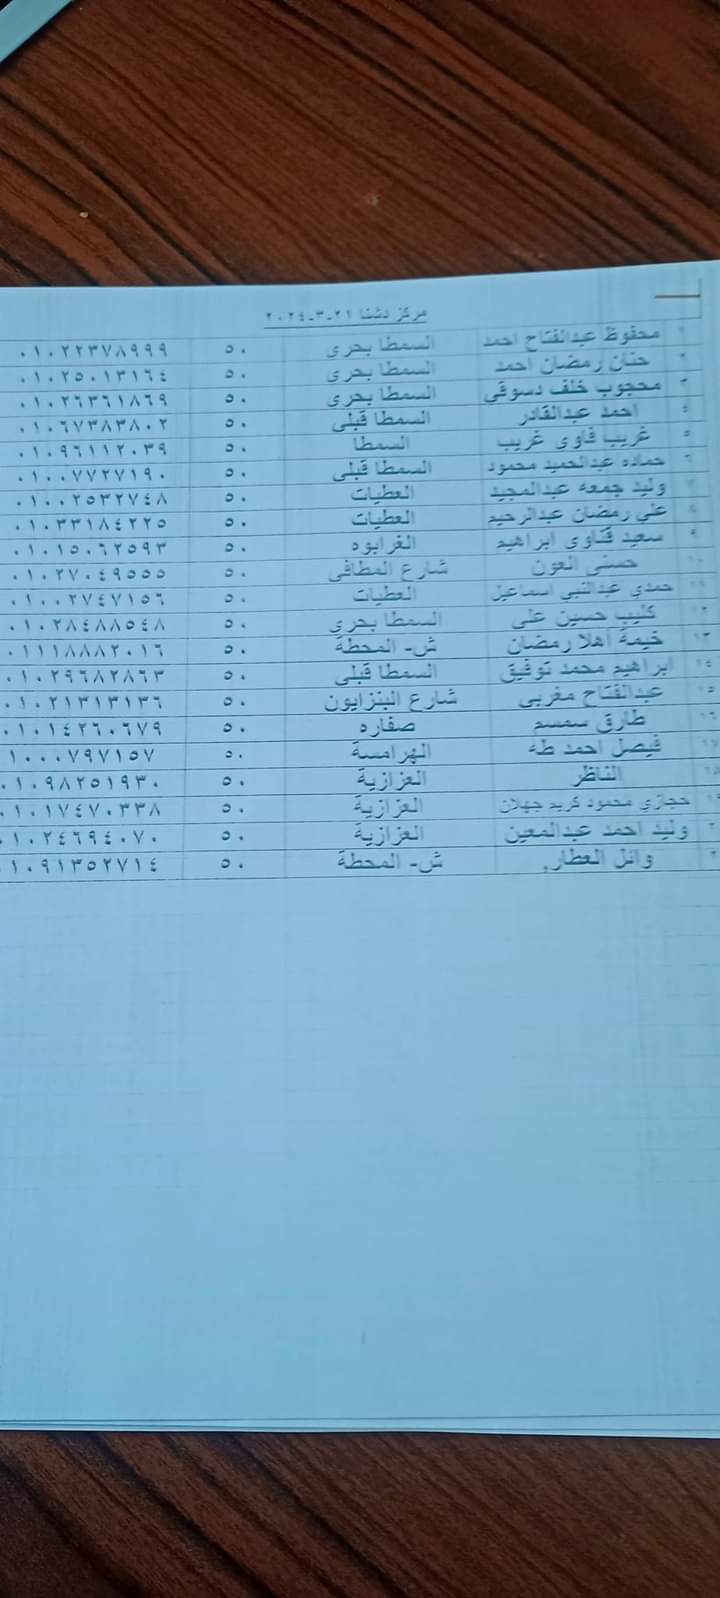 مركز دشنا ٢١-٣-٢٠٢٤
١ محفوظ عبدالفتاح احمد السمطا بحرى ٥٠ ٠١٠٢٢٣٧٨٩٩٩
٢ حنان رمضان احمد السمطا بحرى ٥٠ ٠١٠٢٥٠١٣١٦٤
٣ محجوب خلف دسوقي السمطا بحرى ٥٠ ٠١٠٢٦٣٦١٨٦٩
٤ احمد عبدالقادر السمطا قبلى ٥٠ ٠١٠٦٧٣٨٣٨٠٢
٥ غريب فاوى غريب السمطا ٥٠ ٠١٠٩٦١١٢٠٣٩
٦ حماده عبدالحميد محمود السمطا قبلى ٥٠ ٠١٠٠٧٧٢٧١٩٠
٧ وليد جمعه عبدالمجيد العطيات ٥٠ ٠١٠٠٢٥٣٢٧٤٨
٨ على رمضان عبدالرحيم العطيات ٥٠ ٠١٠٣٣١٨٤٢٢٥
٩ سعيد قناوى ابراهيم الغرابوه ٥٠ ٠١٠١٥٠٦٢٥٩٣
١٠ حسنى العون شارع المطافى ٥٠ ٠١٠٢٧٠٤٩٥٥٥
١١ حمدي عبدالنبي اسماعيل العطيات ٥٠ ٠١٠٠٢٧٤٧١٥٦
١٢ كليب حسين على السمطا بحري ٥٠ ٠١٠٢٨٤٨٨٥٤٨
١٣ خيمة اهلا رمضان ش- المحطة ٥٠ ٠١١١٨٨٨٢٠١٦
١٤ ابراهيم محمد توفيق السمطا قبلى ٥٠ ٠١٠٢٩٦٨٢٨٦٣
١٥ عبدالفتاح مغربى شارع البنزايون ٥٠ ٠١٠٢١٣١٣١٣٦
١٦ طارق سمسم صفاره ٥٠ ٠١٠١٤٢٦٠٦٧٩
١٧ فيصل احمد طه الهرامسة ٥٠ ١٠٠٠٧٩٧١٥٧
١٨ الناظر العزازية ٥٠ ٠١٠٩٨٢٥١٩٣٠
١٩ حجازي محمود كريم جهلان العزازية ٥٠ ٠١٠١٧٤٧٠٣٣٨
٢ وليد احمد عبدالمعين العزازية ٥٠ ٠١٠٢٤٦٩٤٠٧٠
٢ وائل العطار, ش- المحطة ٥٠ ١٠٩١٣٥٢٧١٤